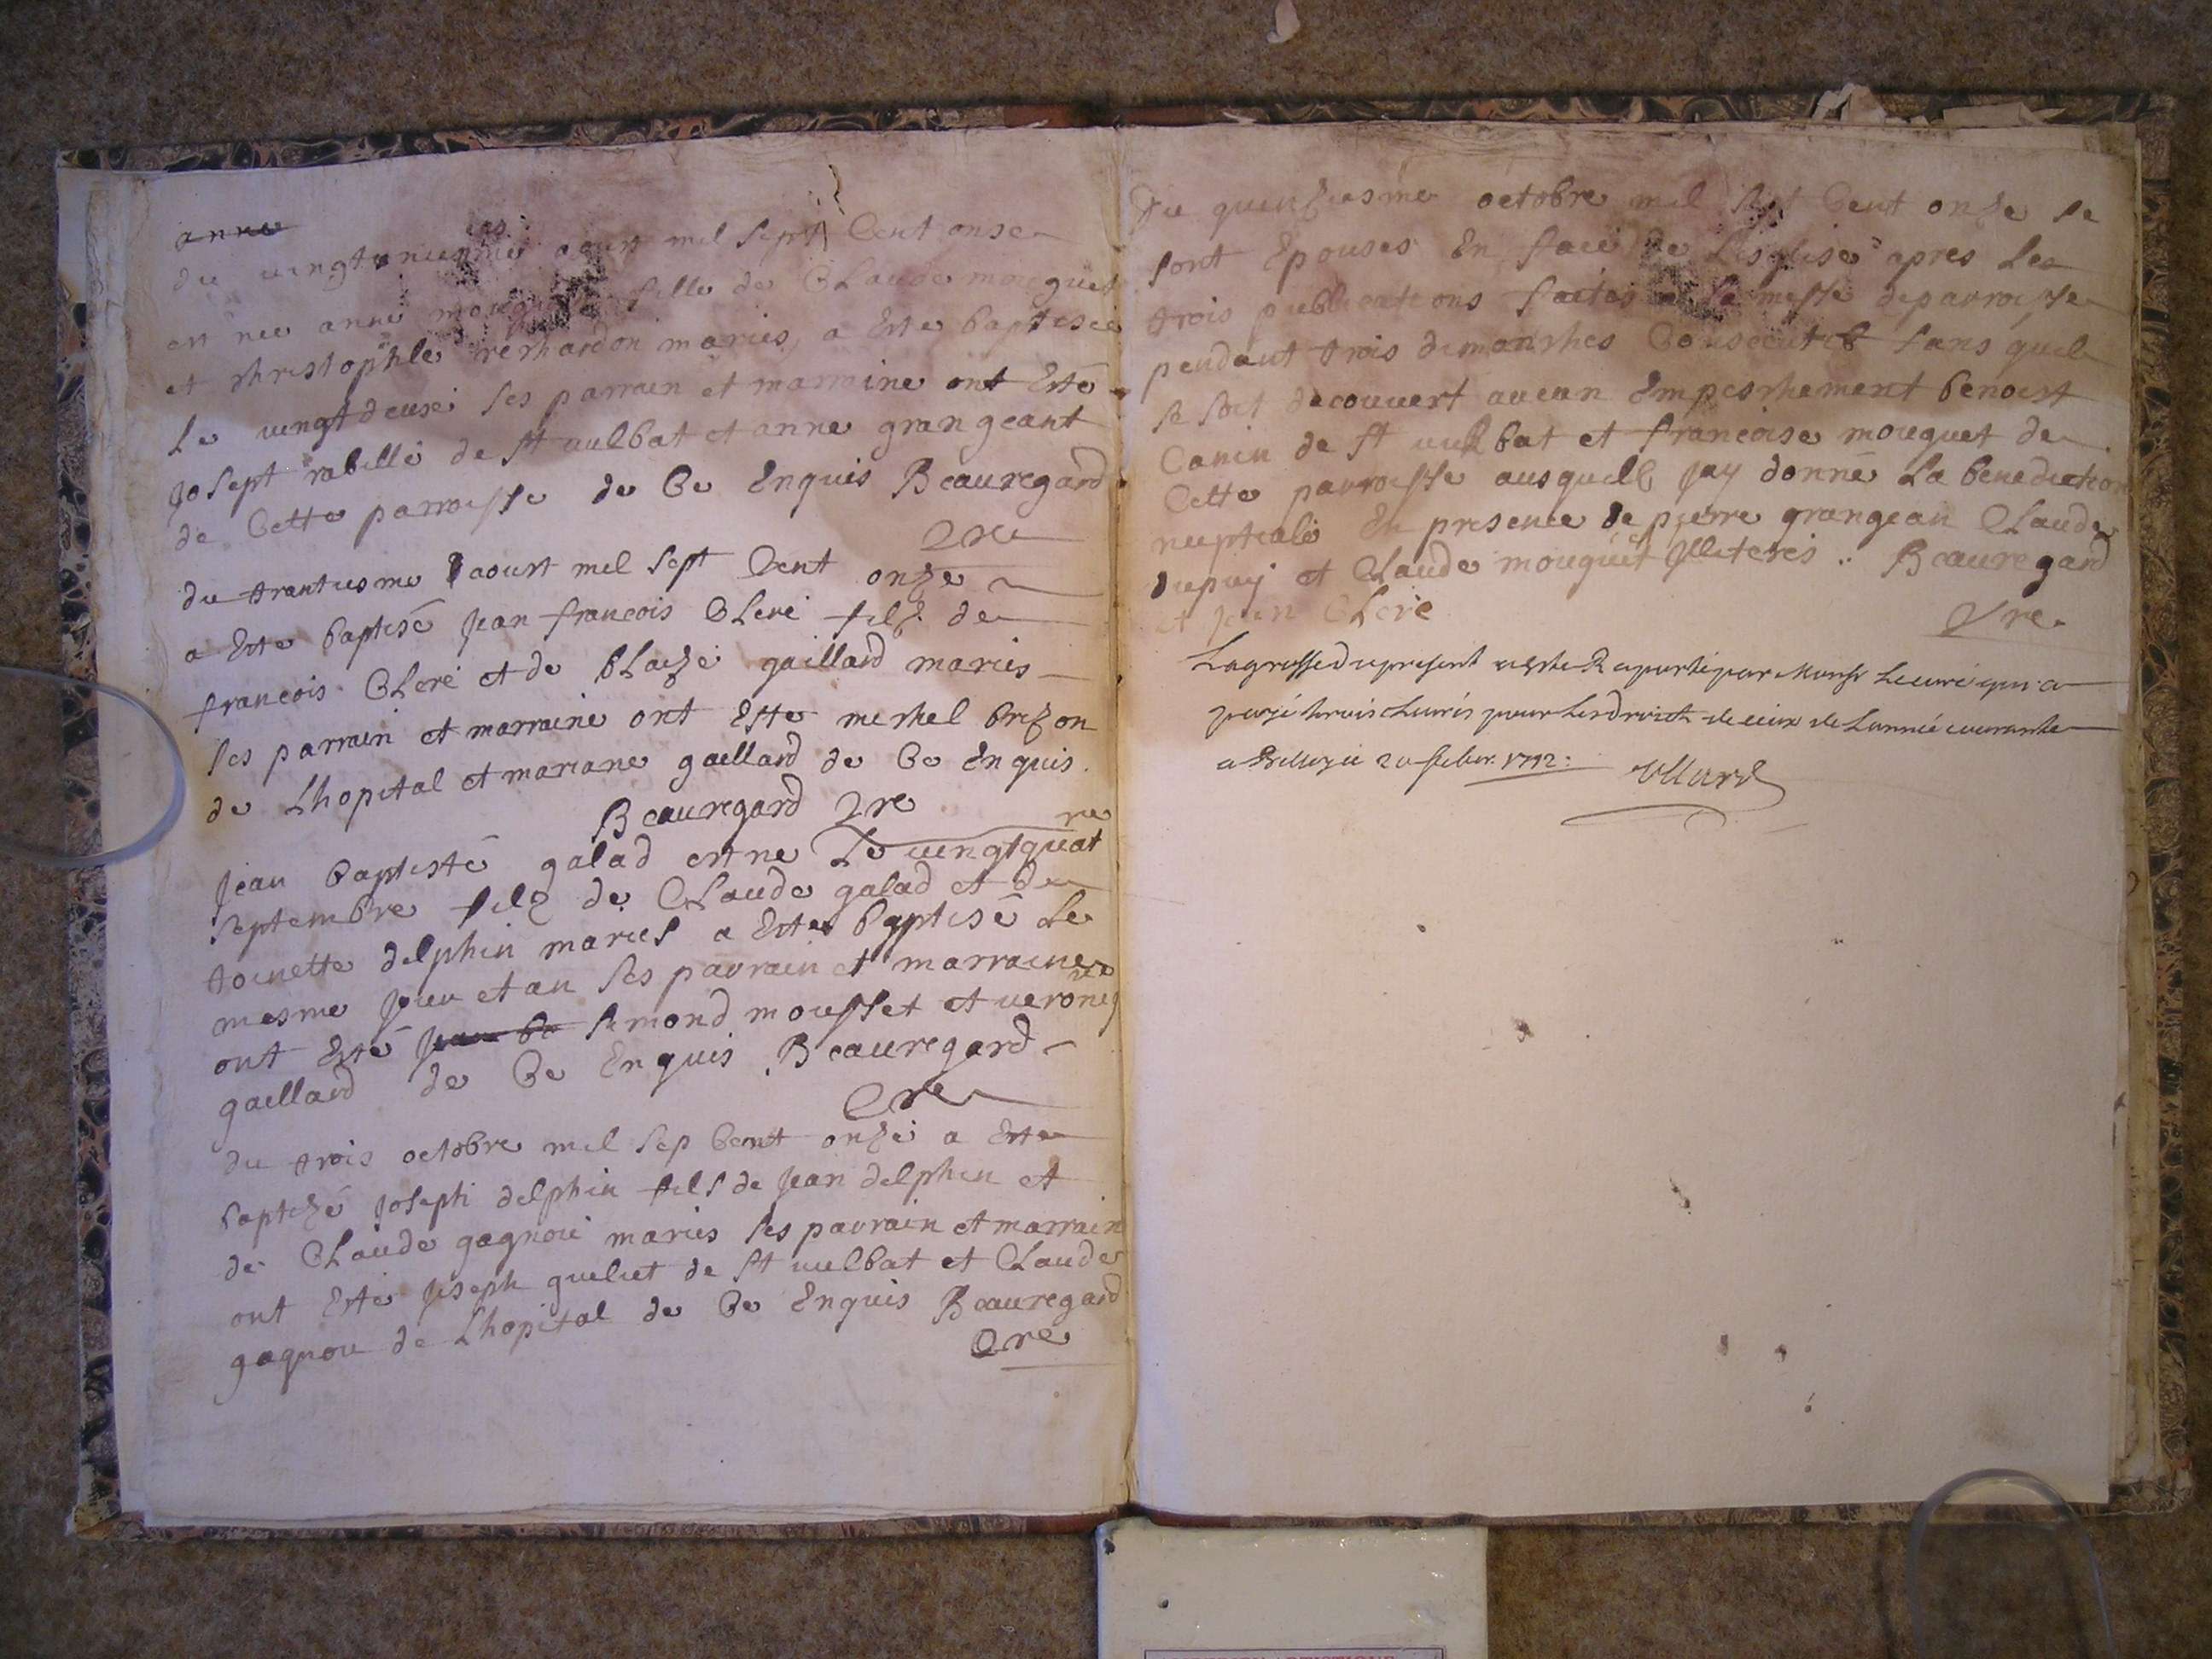 anne
du vingtuniesme aoust mil sept Cent onse
est nee anne fille de Claude mouguet
et christophle rerhardon maries, a Este baptisee
Le vingtdeuse ses parrain et marraine ont Esté
Josept rabilli de st vulbat et anne grangeant
de Cette parroisse de Ce Enquis Beauregard
Cre
du trantiesme aoust mil sept Cent onze
a Este baptisé Jean francois Clere filz de
francois Clere et de Claize gaillard maries
ses parrain et marraine ont Este mishel brizon
de Lhopital et mariane gaillard de Ce Enquis
Beauregard Cre
Jean baptiste galad est ne Le vingtquatre
septembre filz de Claude galad et de
toinette delphin maries a Este baptisé Le
mesme jour et an ses parrain et marraine
ont Esté simond mousset et veronique
gaillard de Ce Enquis Beauregard
Cre
du trois octobre mil sep Cent onze a Este
baptizé Joseph delphin fils de Jean delphin et
de Claude gagnou maries ses parrain et marrain
ont Esté Joseph guelut de st vulbat et Claude
gagnou de Lhopital de Ce Enquis Beauregard
Cre
Du quinziesme octobre mil sept Cent onze se
sont Epouses En face de Lesglise apres Les
trois publications faites a La messe deparroisse
pendant trois dimanshes Consecutif sans quil
se soit decouvert aucun Empeshement benoist
Canin de st vulbat et francoise mouguet de
Cette parroisse ausquelz Jay donné La benediction
nuptiale En presence de pierre grangean Claude
dupuy et Claude mouguet Jlliteres : Beauregard
et Jean Clere
Cre
Lagrosse du present a esté Raporté par Monsr Le curé qui a
payé trois Livres pour les droits de ceux de Lannée courante
a Belley ce 20 1712 :